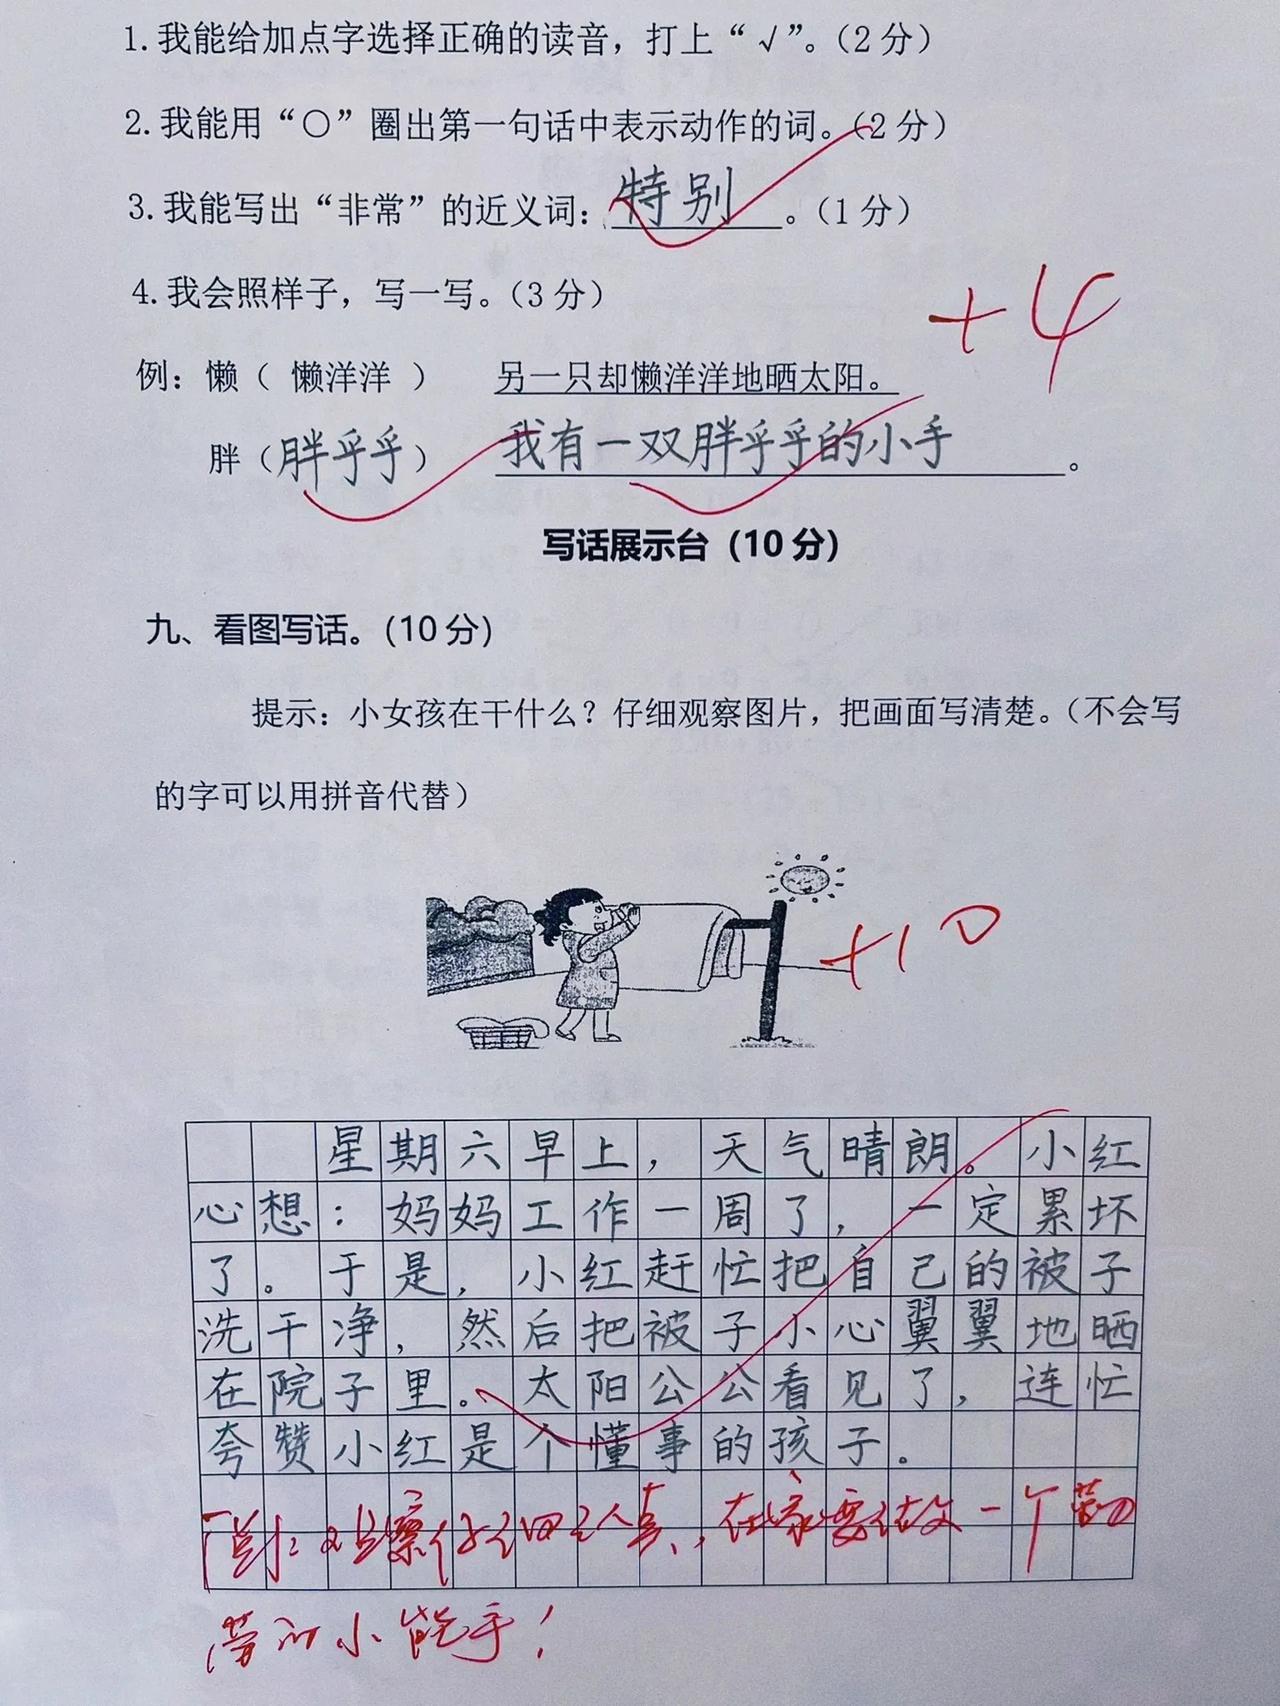 1.我能给加点字选择正确的读音，打上“√”。（2分）
2.我能用“○”圈出第一句话中表示动作的词。（2分）
3.我能写出“非常”的近义词：特别。（1分）
4.我会照样子，写一写。（3分）
+4
例：懒（ 懒洋洋 ） 另一只却懒洋洋地晒太阳。
胖（胖乎乎） 我有一双胖乎乎的小手。
写话展示台（10分）
九、看图写话。（10分）
提示：小女孩在干什么？仔细观察图片，把画面写清楚。（不会写
的字可以用拼音代替）
+10
星期六早上，天气晴朗。小红
心想：妈妈工作一周了，一定累坏
了。于是，小红赶忙把自己的被子
洗干净，然后把被子小心翼翼地晒
在院子里。太阳公公看见了，连忙
夸赞小红是个懂事的孩子。
观察仔细认真，在家要做一个勤
劳的小能手！